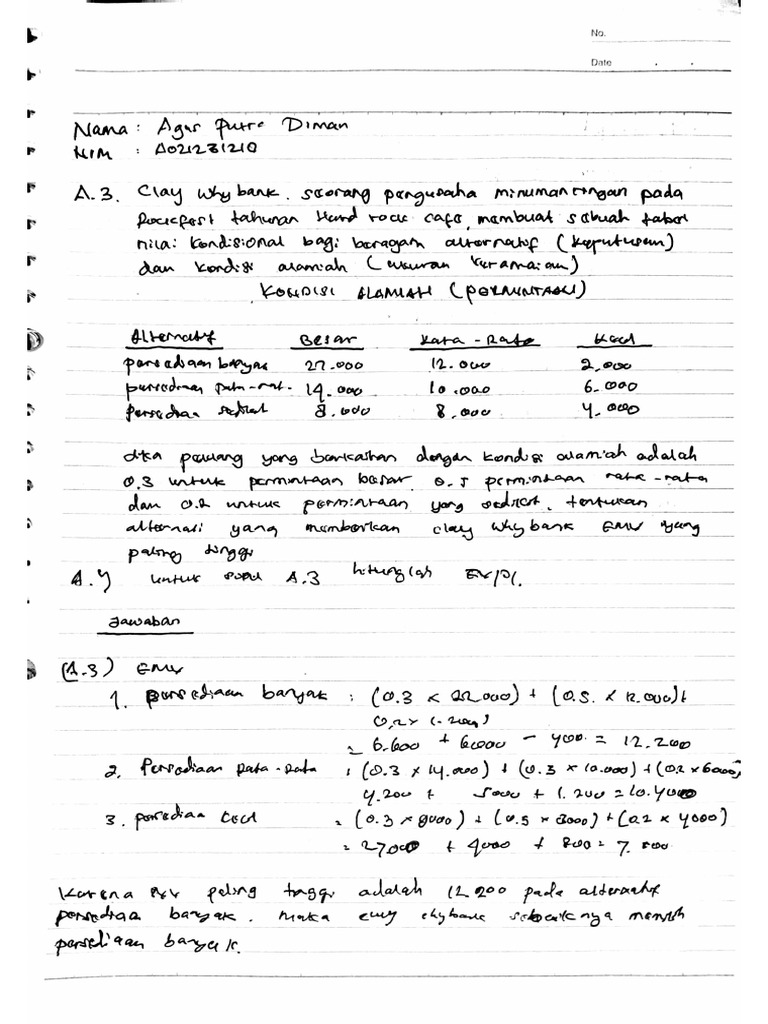 No.
Date
Nama : Agus Putra Diman
NIM : A021231210
A.3. Clay Whybank, seorang pengusaha minuman ringan pada
Rockfest tahunan Hard rock cafe, membuat sebuah tabel
nilai kondisional bagi beragam alternatif (keputusan)
dan kondisi alamiah (ukuran keramaian)
KONDISI ALAMIAH (PERMINTAAN)
Alternatif Besar Rata-Rata Kecil
persediaan banyak 22.000 12.000 2,000
persediaan rata-rat. 14.000 10.000 6.000
persedian sedikit 8.000 8.000 4,000
Jika peluang yang berkaitan dengan kondisi alamiah adalah
0.3 untuk permintaan besar, 0.5 permintaan rata-rata
dan 0.2 untuk permintaan yang sedikit, tentukan
alternatif yang memberikan clay whybank EMV yang
paling tinggi
A.4 untuk soal A.3 hitunglah EVPI.
Jawaban
(A.3) EMV
1. persediaan banyak : (0.3 x 22.000) + (0.5. x 12.000) +
0,2 x (-2000)
= 6.600 + 6000 - 400 = 12.200
2. Persediaan Rata-Rata : (0.3 x 14.000) + (0.3 x 10.000) + (0.2 x 6000)
4.200 + 5000 + 1.200 = 10.400
3. persedian kecil = (0.3 x 8000) + (0.5 x 8000) + (0.2 x 4000)
= + 4000 + 800 = 7.
Karena paling tinggi adalah 12.200 pada alternatif
persediaan banyak. Maka sebaiknya memilih
persediaan banyak.